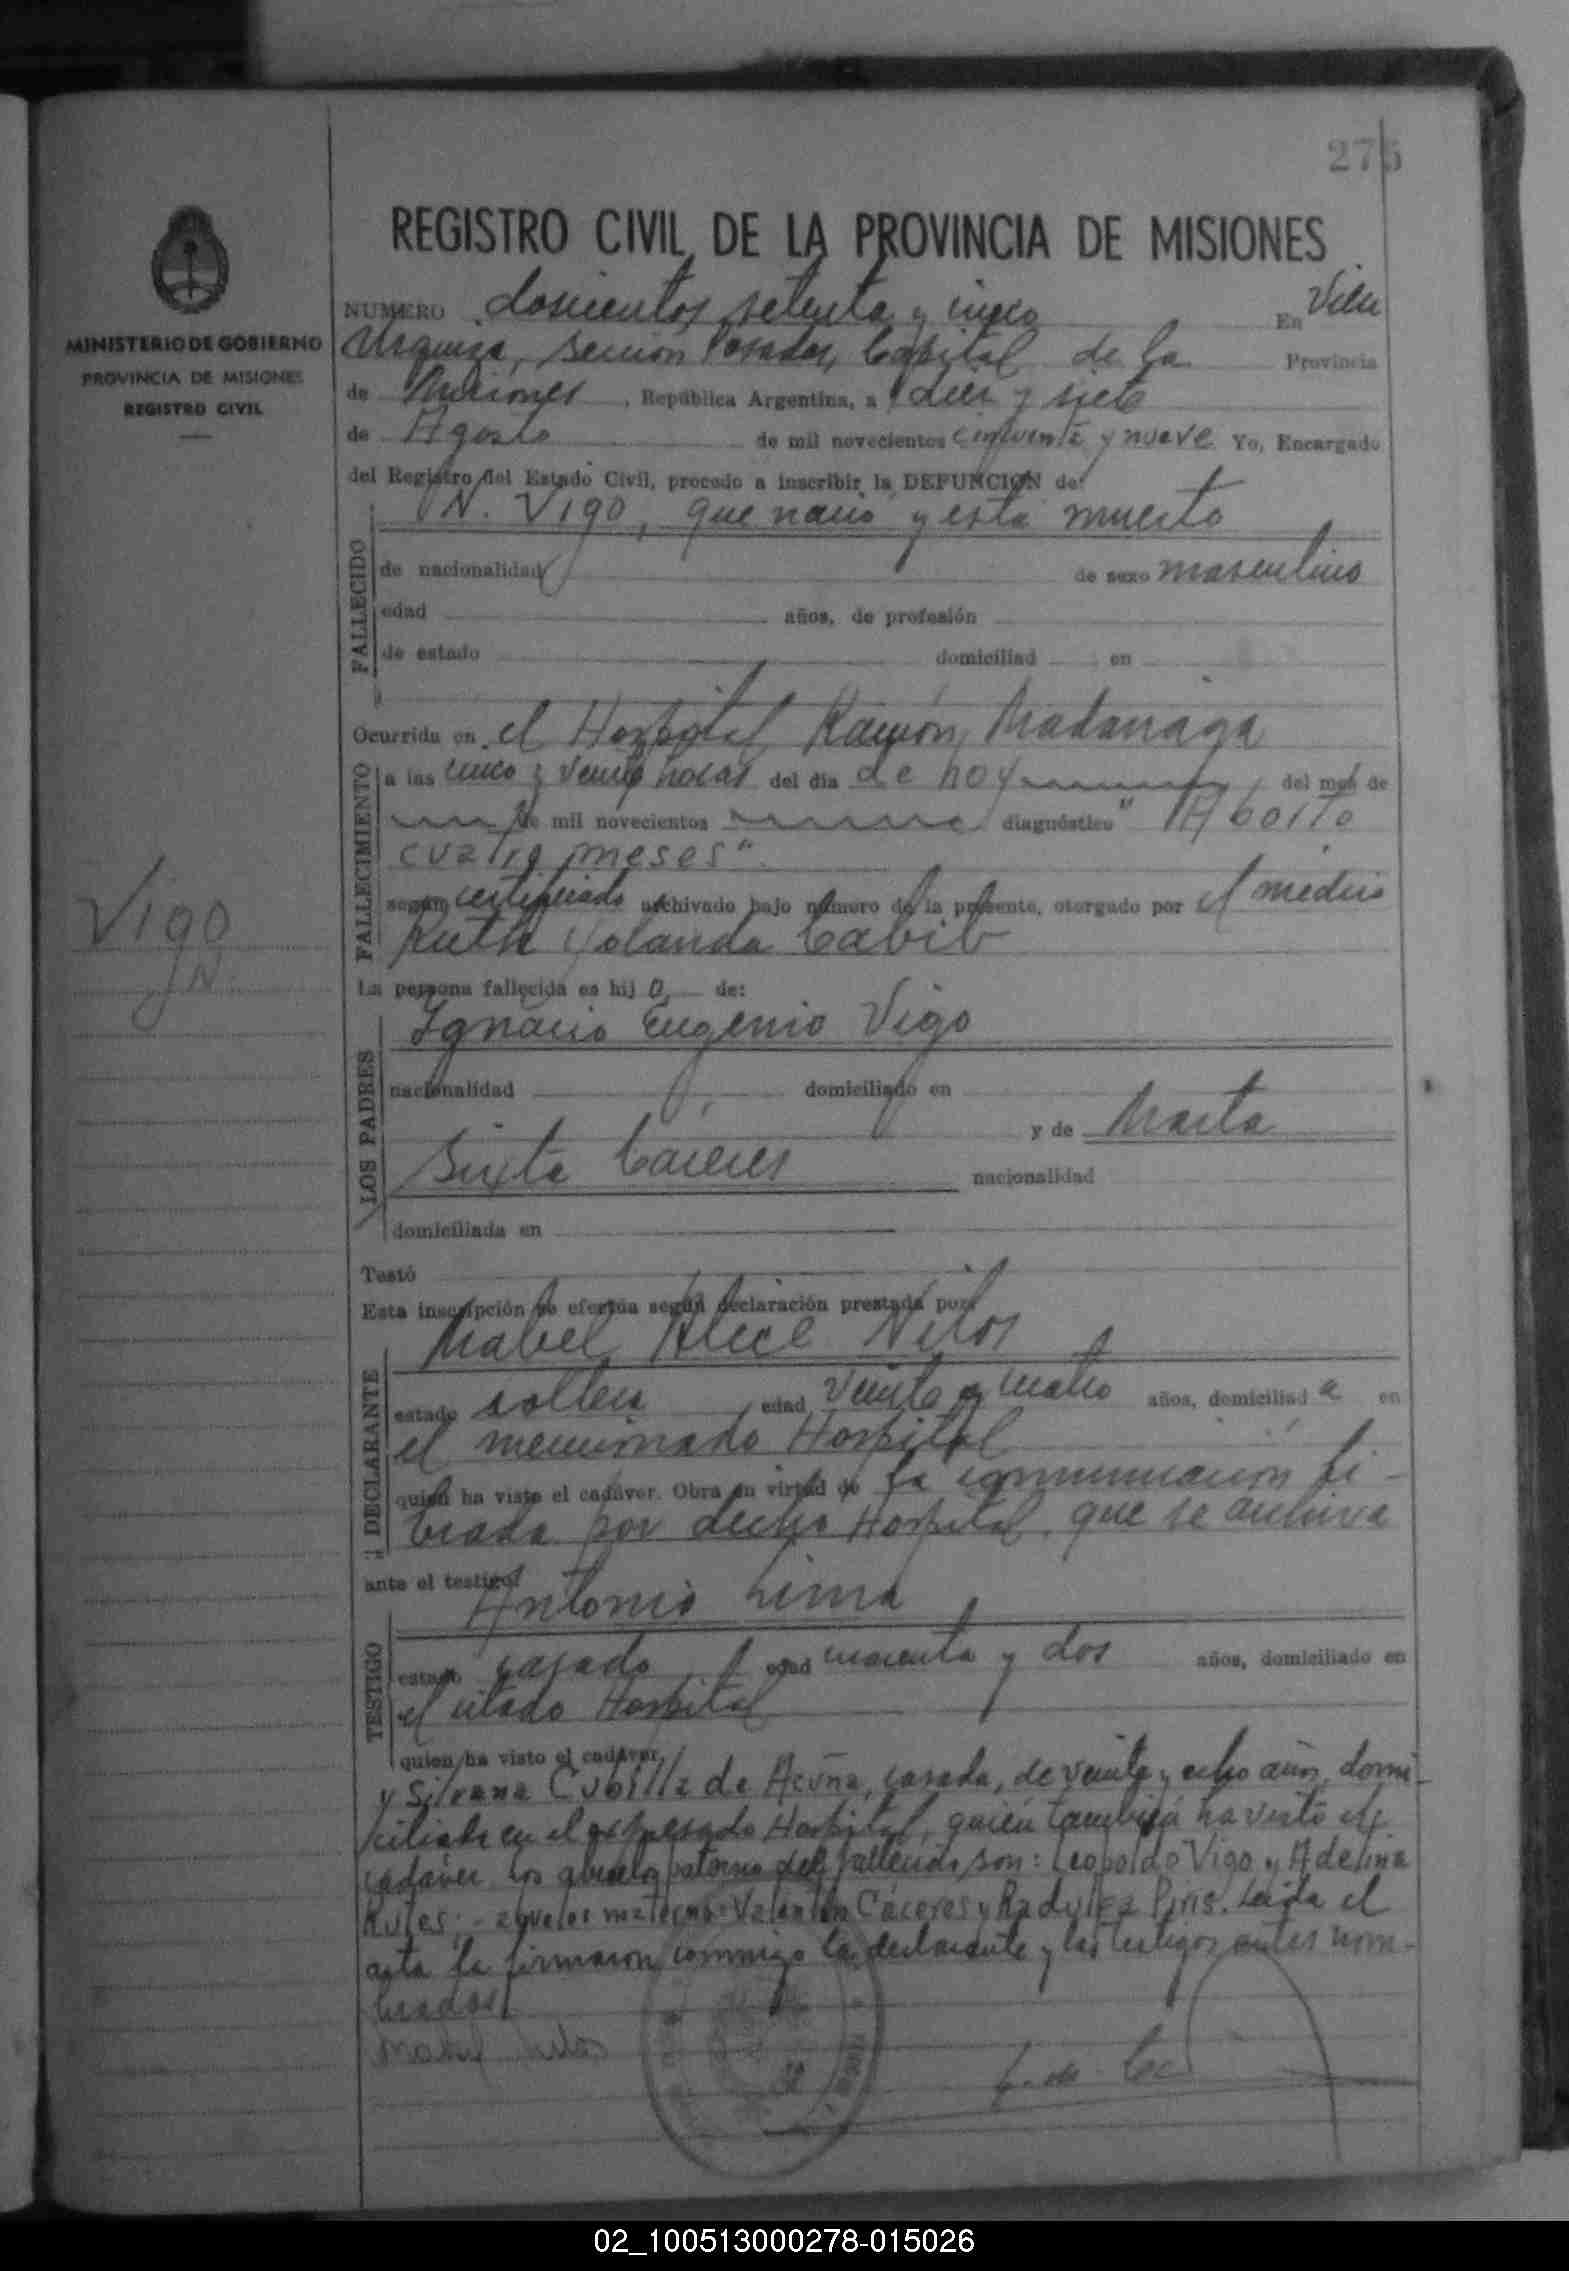 275
REGISTRO CIVIL DE LA PROVINCIA DE MISIONES
MINISTERIO DE GOBIERNO
PROVINCIA DE MISIONES
REGISTRO CIVIL
NUMERO doscientos setenta y cinco En Villa
Urquiza, Sección Posadas, Capital de la Provincia
de Misiones, República Argentina, a diez y siete
de Agosto de mil novecientos cincuenta y nueve Yo, Encargado
del Registro del Estado Civil, procedo a inscribir la DEFUNCION de:
N. Vigo, que nació y está muerto
FALLECIDO
de nacionalidad de sexo masculino
edad años, de profesión
de estado domiciliad en
Ocurrida en el Hospital Ramón Madariaga
FALLECIMIENTO
a las cinco y veinte horas del día de hoy del mes de
de mil novecientos diagnóstico "Aborto
cuatro meses"
según certificado archivado bajo número de la presente, otorgado por el médico
Ruth Yolanda Cabib
Vigo
N.
La persona fallecida es hijo de:
LOS PADRES
Ignacio Eugenio Vigo
nacionalidad domiciliado en
y de Marta
Sixta Cáceres nacionalidad
domiciliada en
Testó
Esta inscripción se efectúa según declaración prestada por:
DECLARANTE
Mabel Alice Nilos
estado soltera edad veinte y cuatro años, domiciliada en
el mencionado Hospital
quien ha visto el cadáver. Obra en virtud de la comunicación li-
brada por dicho Hospital que se archiva
ante el testigo:
TESTIGO
Antonio Lima
estado casado, edad cuarenta y dos años, domiciliado en
el citado Hospital
quien ha visto el cadáver
y Silvana Cubilla de Acuña, casada, de veinte y ocho años, domi-
ciliada en el expresado Hospital, quien también ha visto el
cadáver. Los abuelos paternos del fallecido son: Leopoldo Vigo y Adelina
; - abuelos maternos: Valentín Cáceres y Piris. Leída el
acta la firmaron conmigo la declarante y los testigos antes nom-
brados
Mabel Nilos
02_100513000278-015026